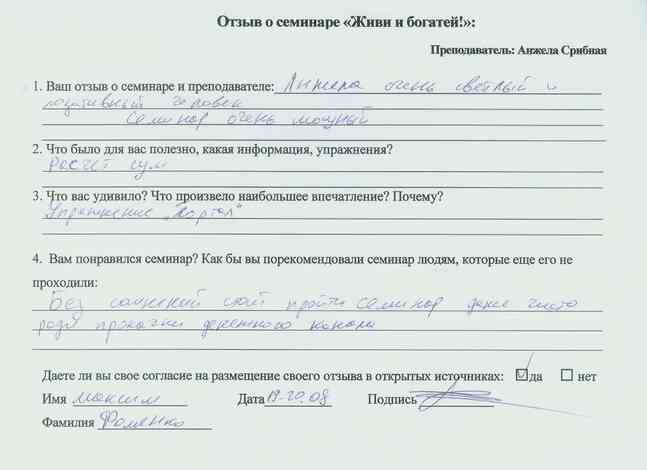 Отзыв о семинаре «Живи и богатей!»:
Преподаватель: Анжела Срибная
1. Ваш отзыв о семинаре и преподавателе: Анжела очень светлый и
позитивный человек
Семинар очень мощный
2. Что было для вас полезно, какая информация, упражнения?
Расчет сум
3. Что вас удивило? Что произвело наибольшее впечатление? Почему?
Упражнение „Портал"
4. Вам понравился семинар? Как бы вы порекомендовали семинар людям, которые еще его не
проходили:
Без сомнений стоит пройти семинар даже чисто
ради прокачки денежного канала
Даете ли вы свое согласие на размещение своего отзыва в открытых источниках: да нет
Имя Максим Дата Подпись
Фамилия Фоменко